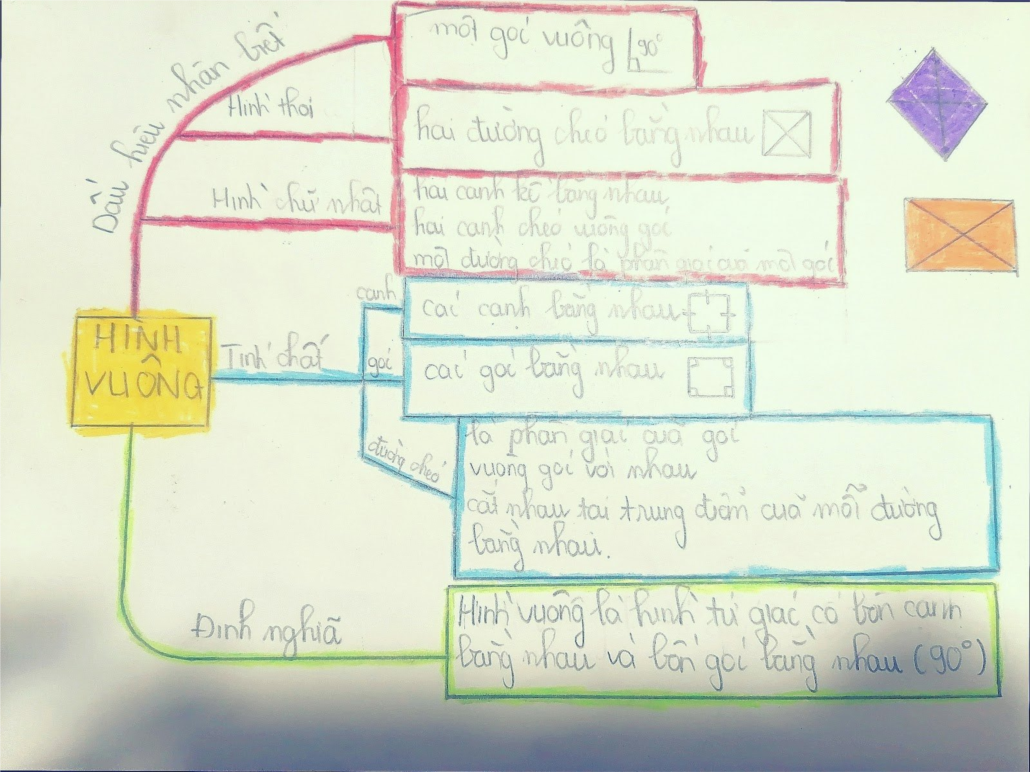 Dấu hiệu nhận biết
một góc vuông 90°
Hình thoi
hai đường chéo bằng nhau
Hình chữ nhật
hai cạnh kề bằng nhau
hai cạnh chéo vuông góc
một đường chéo là phân giác của một góc
HÌNH
VUÔNG
Tính chất
cạnh
các cạnh bằng nhau
góc
các góc bằng nhau
đường chéo
là phân giác của góc
vuông góc với nhau
cắt nhau tại trung điểm của mỗi đường
bằng nhau.
Định nghĩa
Hình vuông là hình tứ giác có bốn cạnh
bằng nhau và bốn góc bằng nhau (90°)